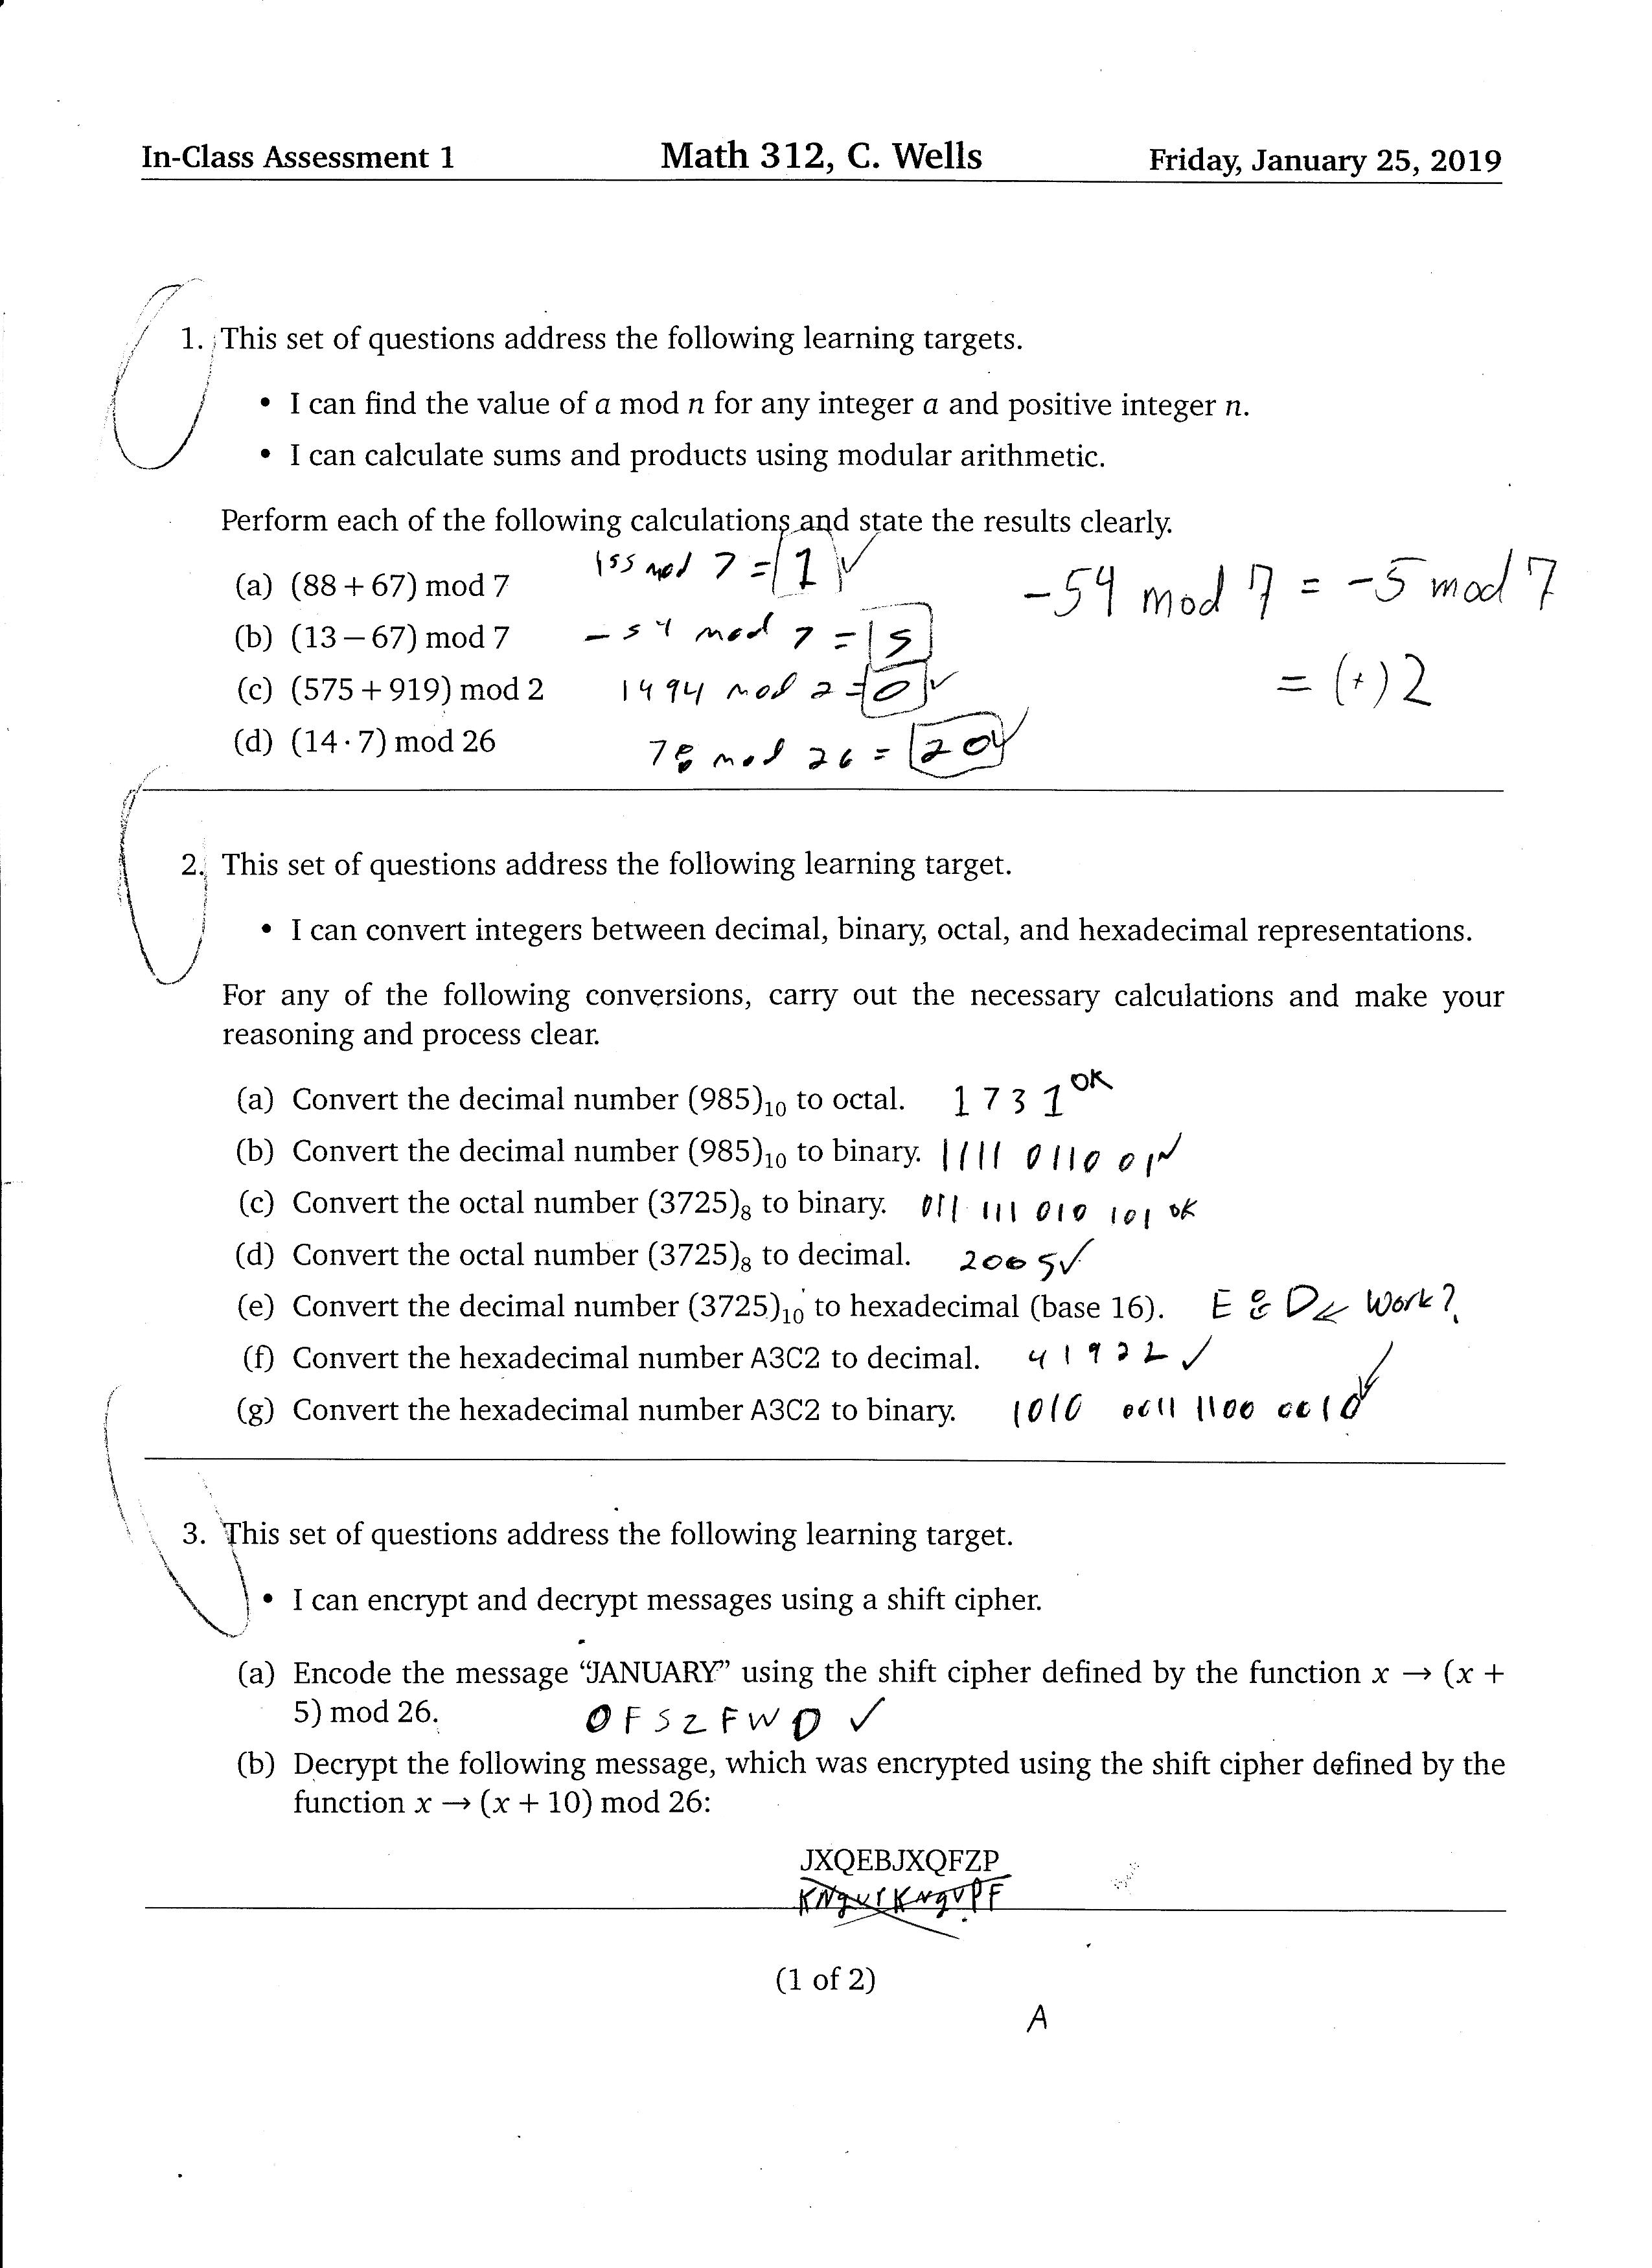 In-Class Assessment 1 Math 312, C. Wells Friday, January 25, 2019
1. This set of questions address the following learning targets.
• I can find the value of a mod n for any integer a and positive integer n.
• I can calculate sums and products using modular arithmetic.
Perform each of the following calculations and state the results clearly.
(a) (88 + 67) mod 7 155 mod 7 = 1 ✓
(b) (13 − 67) mod 7 -54 mod 7 = 5
-54 mod 7 = -5 mod 7
= (+) 2
(c) (575 + 919) mod 2 1494 mod 2 = 0 ✓
(d) (14 · 7) mod 26 78 mod 26 = 20 ✓
2. This set of questions address the following learning target.
• I can convert integers between decimal, binary, octal, and hexadecimal representations.
For any of the following conversions, carry out the necessary calculations and make your
reasoning and process clear.
(a) Convert the decimal number (985)₁₀ to octal. 1731 OK
(b) Convert the decimal number (985)₁₀ to binary. 1111 0110 01 ✓
(c) Convert the octal number (3725)₈ to binary. 011 111 010 101 OK
(d) Convert the octal number (3725)₈ to decimal. 2005 ✓
(e) Convert the decimal number (3725)₁₀ to hexadecimal (base 16). E 8 D ← Work?
(f) Convert the hexadecimal number A3C2 to decimal. 41922 ✓
(g) Convert the hexadecimal number A3C2 to binary. 1010 0011 1100 0010 ✓
3. This set of questions address the following learning target.
• I can encrypt and decrypt messages using a shift cipher.
(a) Encode the message “JANUARY” using the shift cipher defined by the function x → (x +
5) mod 26. OFSZFWD ✓
(b) Decrypt the following message, which was encrypted using the shift cipher defined by the
function x → (x + 10) mod 26:
JXQEBJXQFZP
(1 of 2)
A